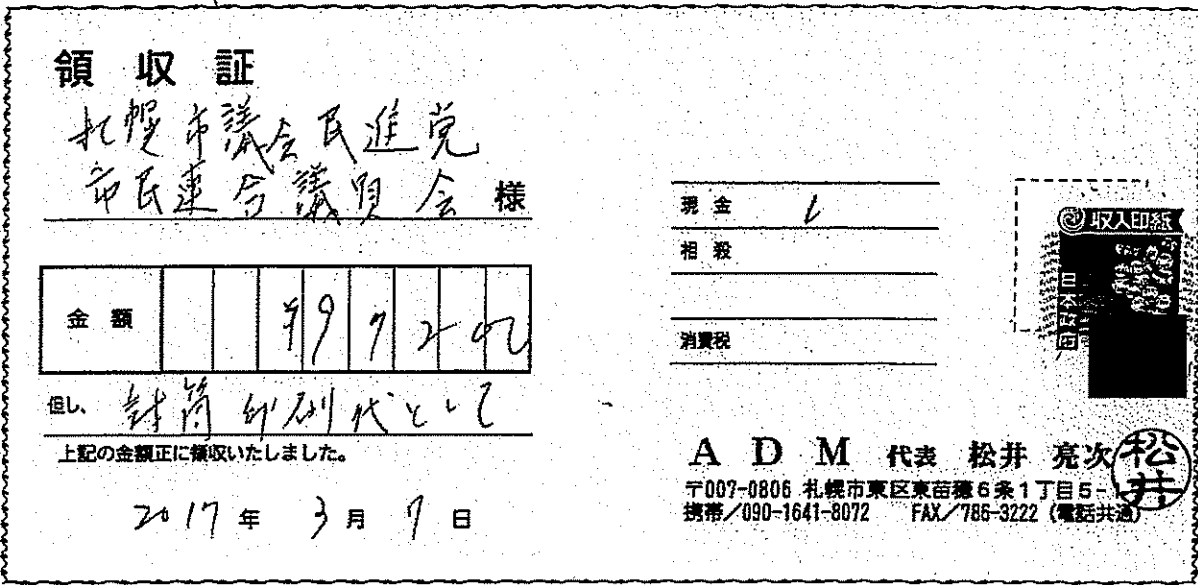 領収証
札幌市議会民進党
市民連合議員会 様
金額 ¥97200
但し、封筒印刷代として
上記の金額正に領収いたしました。
2017年 3月 7日
現金
相殺
消費税
収入印紙
ADM 代表 松井 亮次
松井
〒007-0806 札幌市東区東苗穂6条1丁目5-
携帯/090-1641-8072 FAX/785-3222 (電話共通)